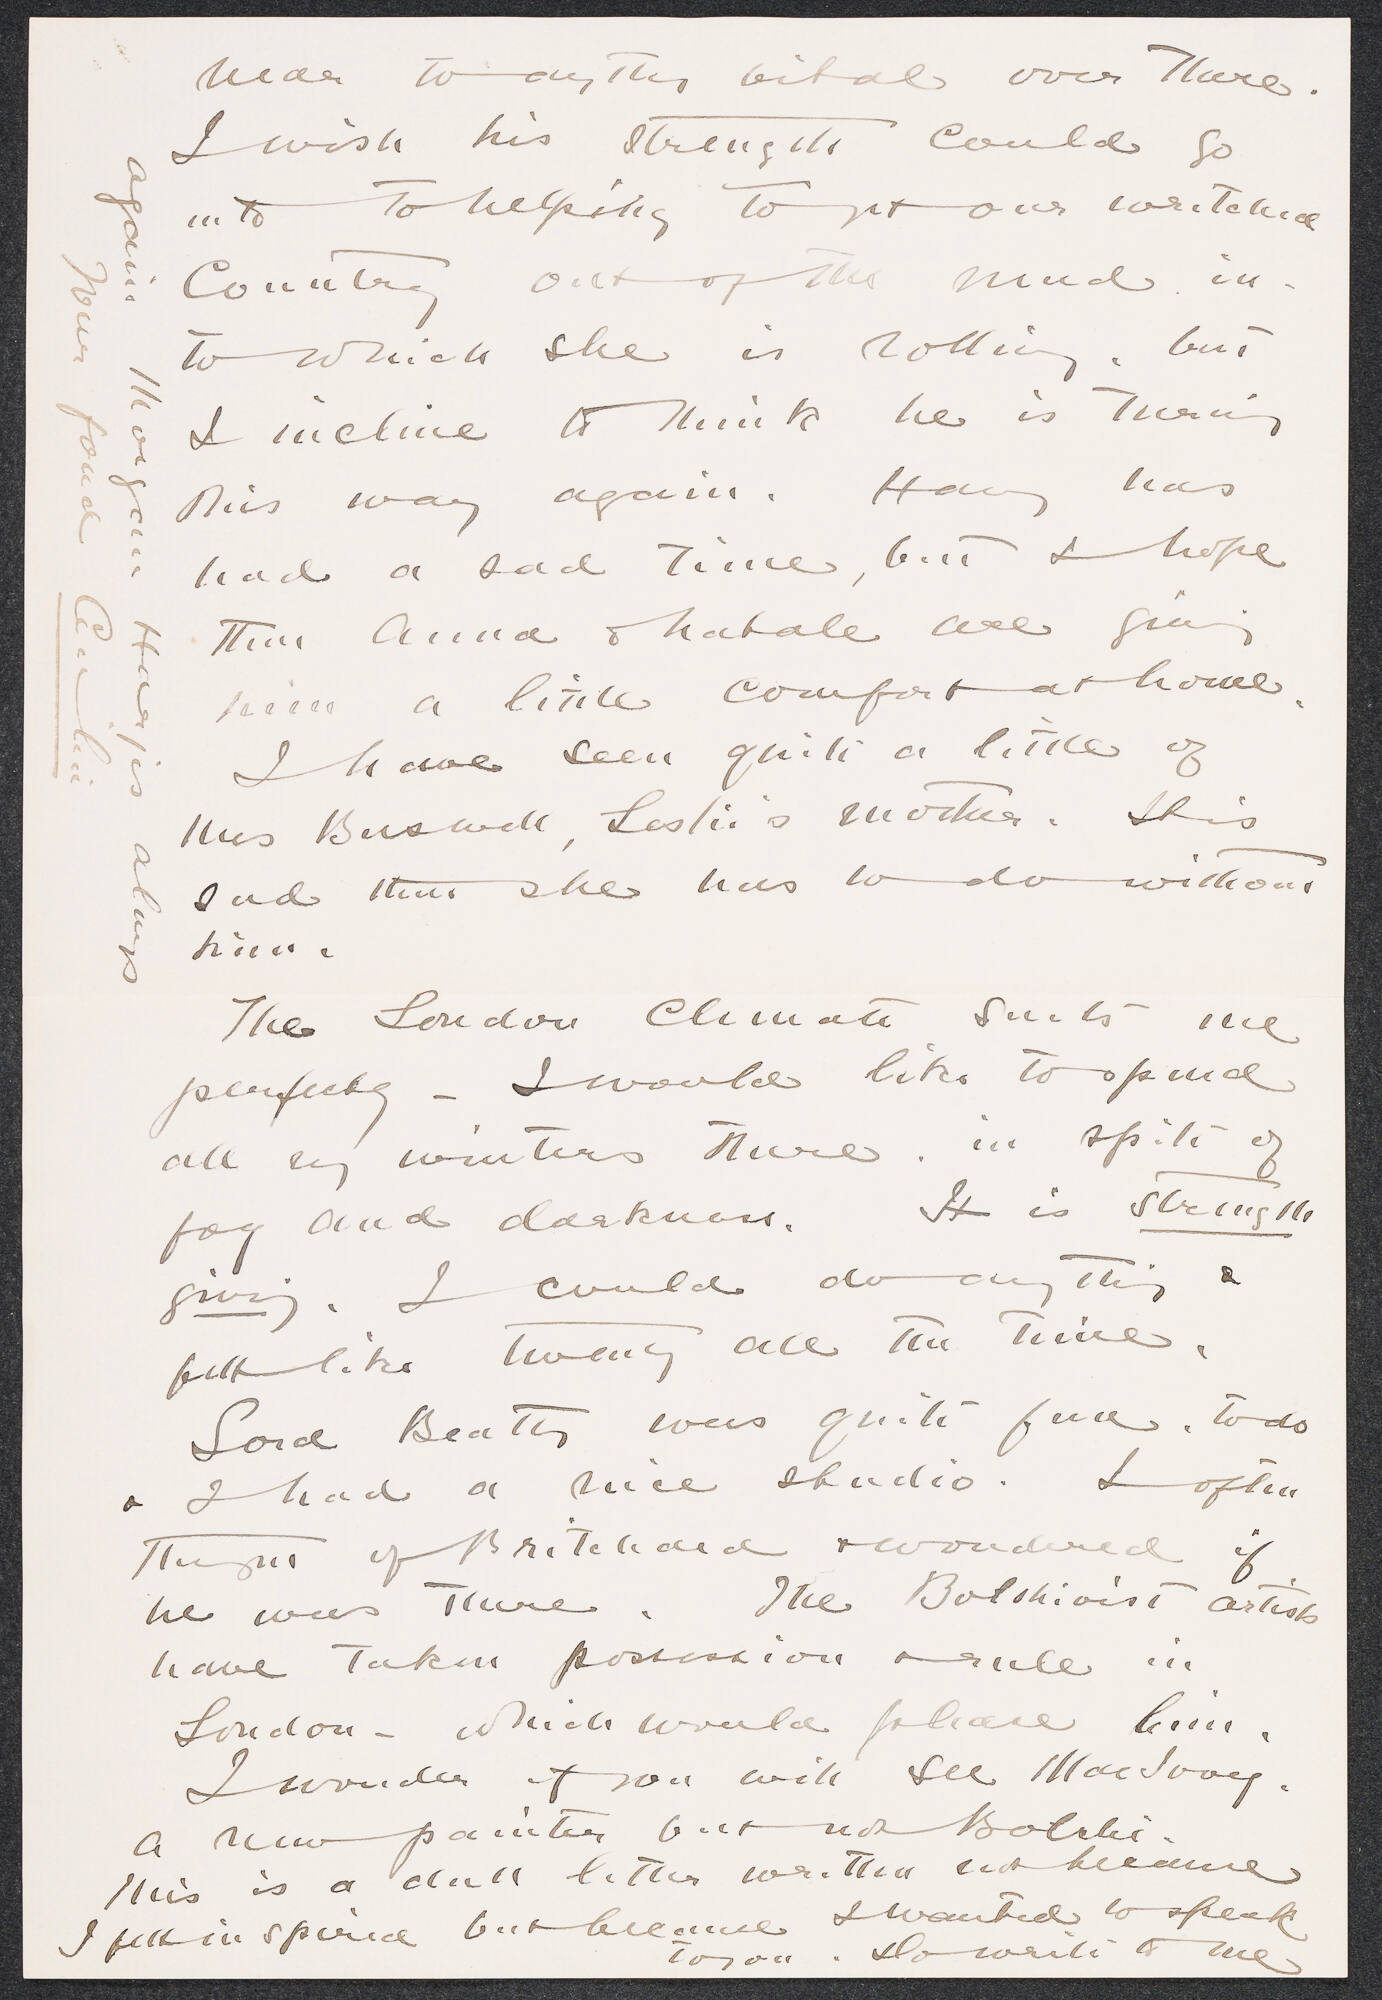 near to anything vital over there.
I wish his strength could go
into to helping to get our wretched
Country out of the mud in-
to which she is rolling, but
I incline to think he is turning
this way again. Harry has
had a sad time, but I hope
that Anna & Natale are giving
him a little comfort at home.
I have seen quite a little of
Mrs Buswell, Leslie's mother. It is
sad that she has to do without
him.
The London Climate suits me
perfectly - I would like to spend
all my winters there, in spite of
fog and darkness. It is strength
giving. I could do anything &
felt like twenty all the time.
Lord Beatty was quite fine, to do
& I had a nice studio. I often
thought of Pritchard & wondered if
he was there. The Bolshivist artists
have taken possession & rule in
London - which would please him.
I wonder if you will see
a new painter but not Bolshi.
This is a dull letter written not because
I felt inspired but because I wanted to speak
to you. Do write to me
again Morgan Harjis always
Your fond Cecilia